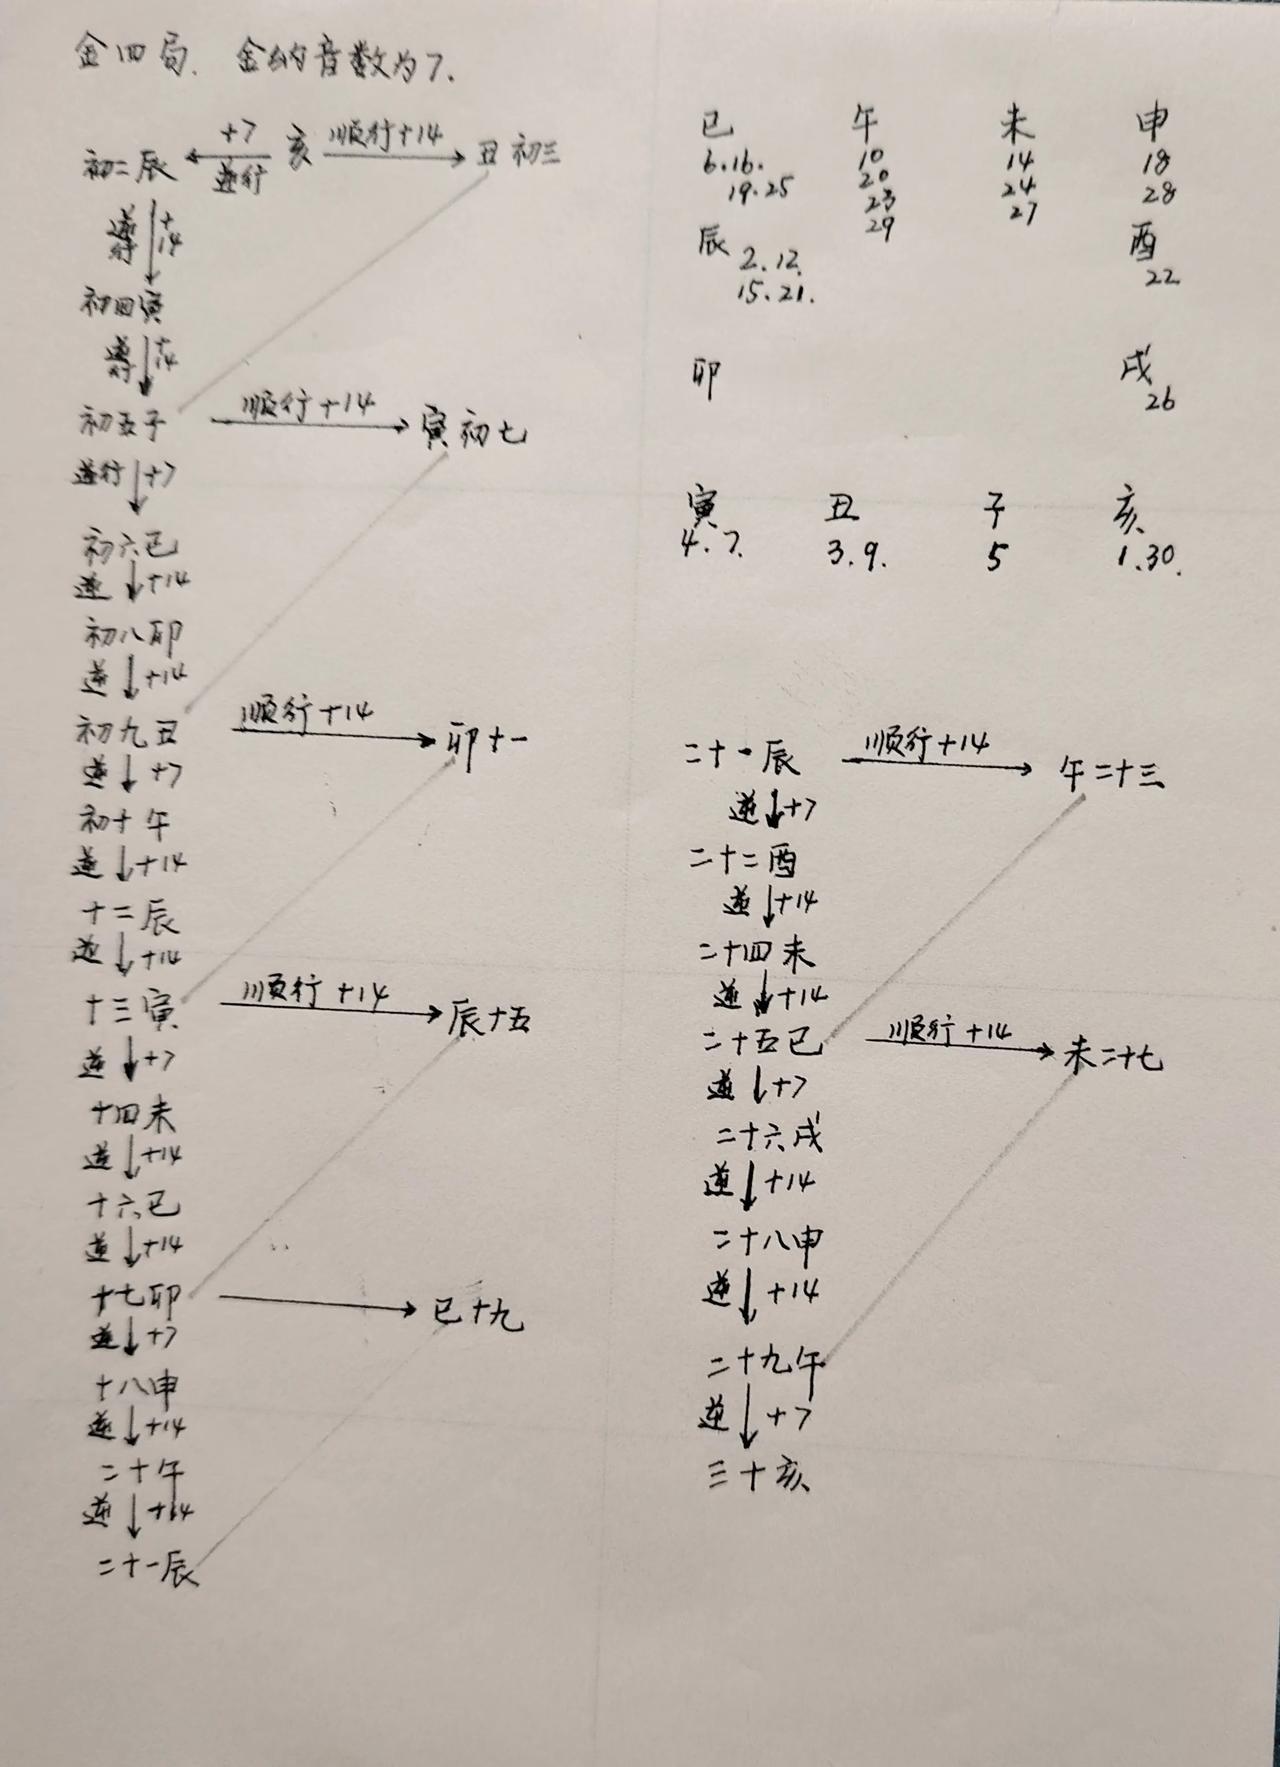 金四局、金纳音数为7.
初二辰 ←+7 逆行 亥 顺行+14→ 丑 初三
逆行 ↓+14
初四寅
逆行 ↓+14
初五子 顺行+14→ 寅 初七
逆行 ↓+7
初六巳
逆 ↓+14
初八卯
逆 ↓+14
初九丑 顺行+14→ 卯十一
逆 ↓+7
初十午
逆 ↓+14
十二辰
逆 ↓+14
十三寅 顺行+14→ 辰十五
逆 ↓+7
十四未
逆 ↓+14
十六巳
逆 ↓+14
十七卯 → 巳十九
逆 ↓+7
十八申
逆 ↓+14
二十午
逆 ↓+14
二十一辰
巳 午 未 申
6.16. 10 14 18
19.25 20 24 28
23 27
29
辰 酉
2.12. 22
15.21.
卯 戌
26
寅 丑 子 亥
4.7. 3.9. 5 1.30.
二十一辰 顺行+14→ 午二十三
逆 ↓+7
二十二酉
逆 ↓+14
二十四未
逆 ↓+14
二十五巳 顺行+14→ 未二十七
逆 ↓+7
二十六戌
逆 ↓+14
二十八申
逆 ↓+14
二十九午
逆 ↓+7
三十亥